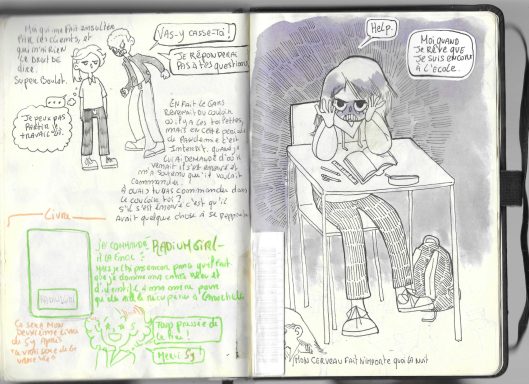 Moi qui me fait insulter
par les clients, et
qui m'ai rien
le droit de
dire.
Super Boulot.
Vas-y casse-toi !
Je répondrai
pas à tes questions
Je peux pas
partir je
travail ici.
En fait le gars
revenait du couloir
où il y a les toilettes,
mais en cette période
de pandémie c'est
interdit. Quand je
lui a demandé d'où il
venait il s'est énervé et
m'a soutenu qu'il voulait
commander.
À ouais tu vas commander dans
le couloir toi ?
S'il s'est énervé c'est qu'il
avait quelque chose à se
Livre
J'ai commandé RADIUM GIRL
à la Fnac !
RADIUM GIRL
Ça sera mon
deuxième livre
de Sy après
Trop pressée de
le lire !
Merci Sy !
Help.
Moi quand
je rêve que
je suis encore
à l'école.
Mon cerveau fait n'importe quoi la nuit